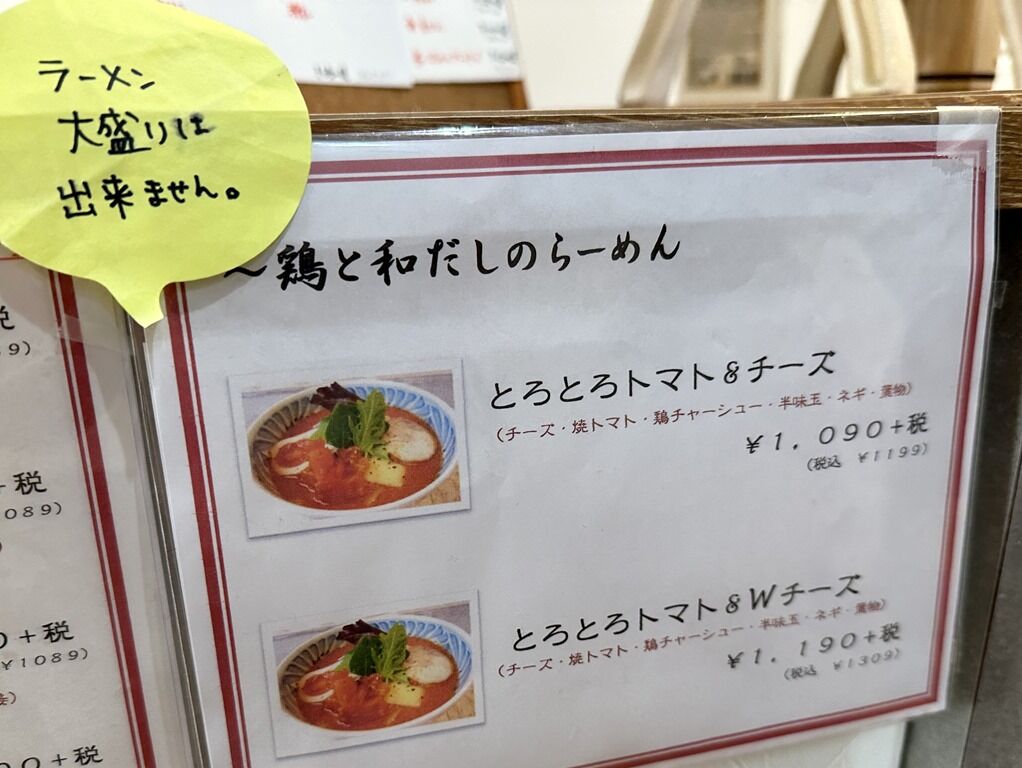 ラーメン
大盛りは
出来ません。
～鶏と和だしのらーめん
とろとろトマト&チーズ
(チーズ・焼トマト・鶏チャーシュー・半味玉・ネギ・葉物)
¥1,090+税
(税込 ¥1199)
とろとろトマト&Wチーズ
(チーズ・焼トマト・鶏チャーシュー・半味玉・ネギ・葉物)
¥1,190+税
(税込 ¥1309)
税
9)
+税
089)
0+税
¥1089)
00+税